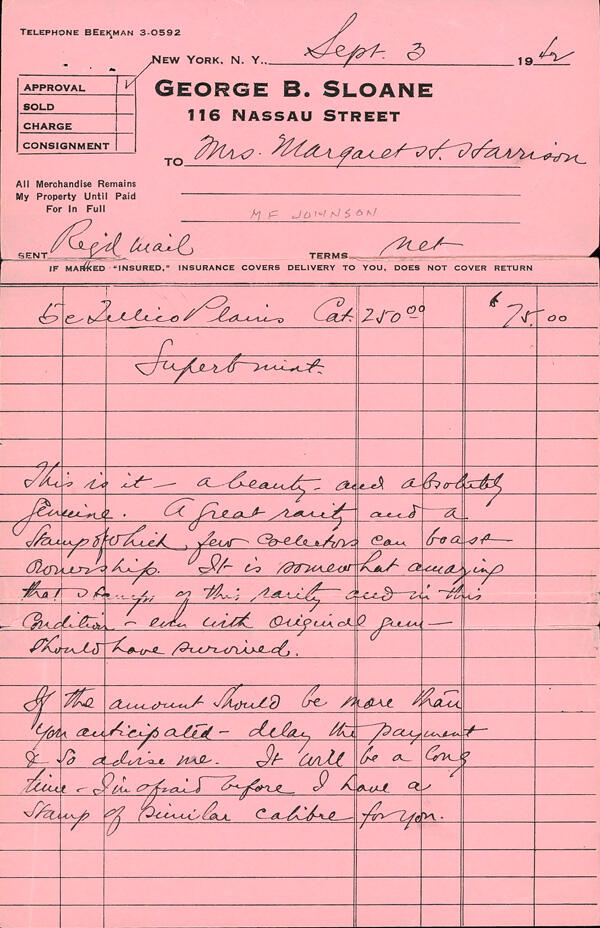 TELEPHONE BEEKMAN 3-0592
NEW YORK, N. Y., Sept. 3 1942
APPROVAL ✓
SOLD
CHARGE
CONSIGNMENT
GEORGE B. SLOANE
116 NASSAU STREET
TO Mrs. Margaret H. Harrison
All Merchandise Remains
My Property Until Paid
For In Full
MF JOHNSON
SENT Reg'd mail TERMS net
IF MARKED "INSURED," INSURANCE COVERS DELIVERY TO YOU, DOES NOT COVER RETURN
5c Tellico Plains Cat. 250.00 $75.00
Superb mint.
This is it – a beauty – and absolutely
genuine. A great rarity and a
stamp of which few collectors can boast
ownership. It is somewhat amazing
that stamps of this rarity and in this
condition – even with original gum –
should have survived.
If the amount should be more than
you anticipated – delay the payment
& so advise me. It will be a long
time – I'm afraid before I have a
stamp of similar calibre for you.